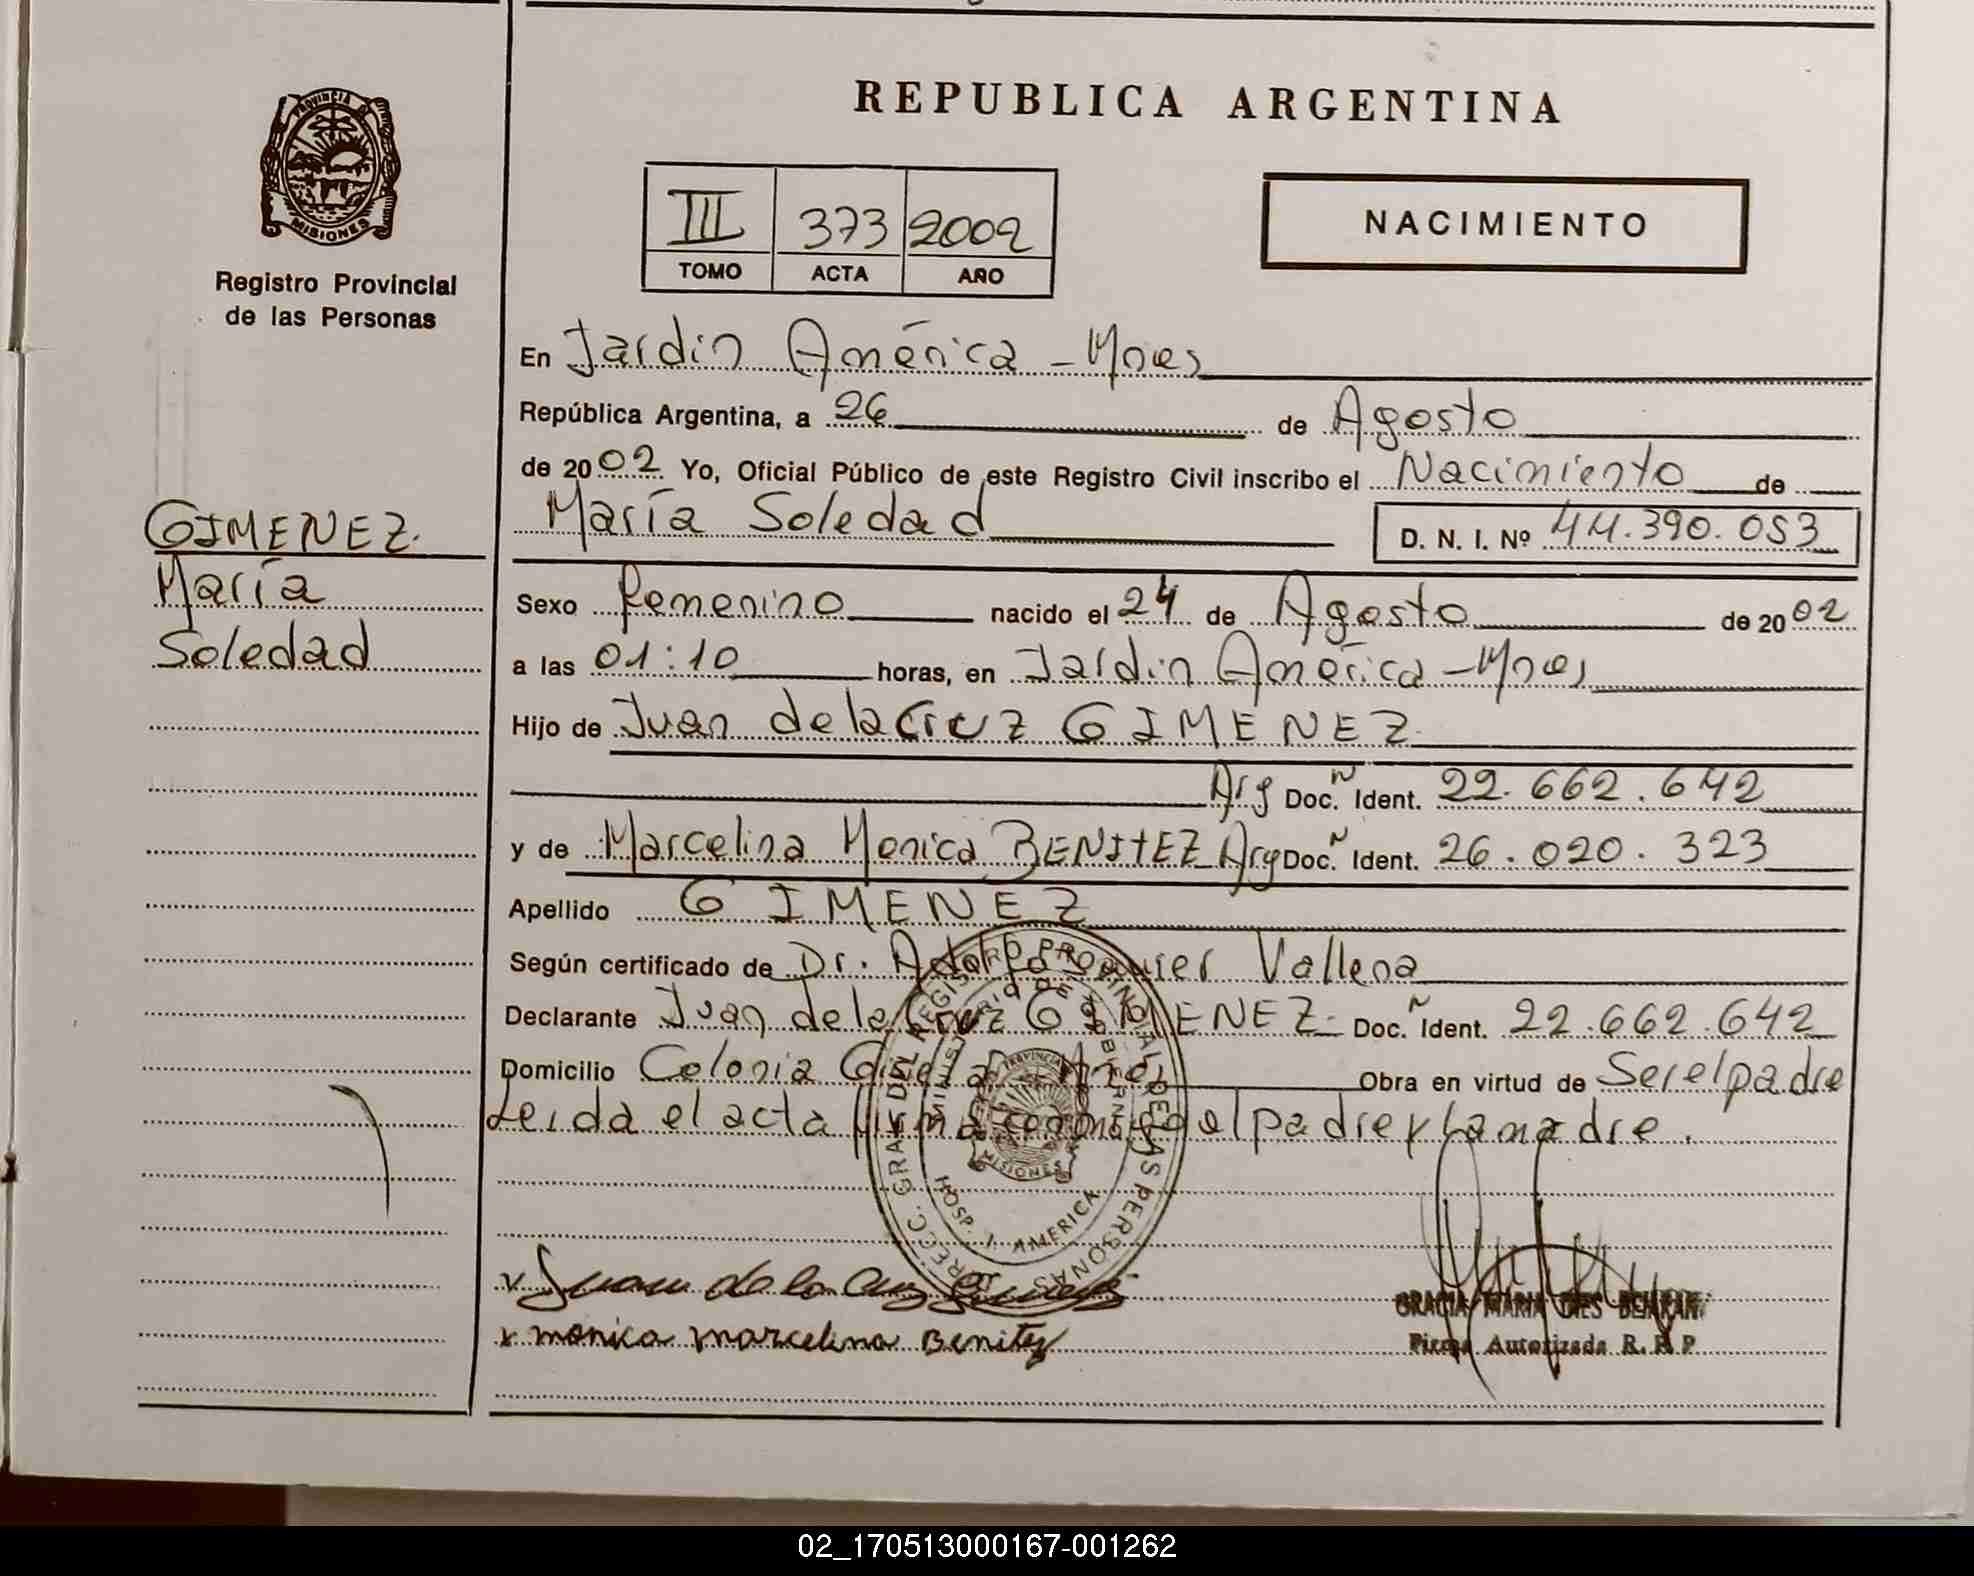 REPUBLICA ARGENTINA
PROVINCIA DE
MISIONES
Registro Provincial
de las Personas
III 373 2002
TOMO ACTA AÑO
NACIMIENTO
En Jardin América - Mnes
República Argentina, a 26 de Agosto
de 2002 Yo, Oficial Público de este Registro Civil inscribo el Nacimiento de
María Soledad D. N. I. Nº 44.390.053
GIMENEZ.
María
Soledad
Sexo femenino nacido el 24 de Agosto de 2002
a las 01:10 horas, en Jardin América - Mnes
Hijo de Juan de la Cruz GIMENEZ
Arg Doc. Ident. 22.662.642
y de Marcelina Monica BENITEZ Arg Doc. Ident. 26.020.323
Apellido GIMENEZ
Según certificado de Dr. Vallena
Declarante Juan de la Cruz GIMENEZ. Doc. Ident. 22.662.642
Domicilio Colonia Obra en virtud de Ser el padre
Leida el acta el padre y la madre.
DIRECC. GRAL DEL REGISTRO PROVINCIAL DE LAS PERSONAS
MINISTERIO DE GOBIERNO
HOSP. J. AMERICA
PROVINCIA
MISIONES
Juan de la Cruz Gimenez
monica marcelina Benitez
GRACIA MARIA
Firma Autorizada R. P. P
02_170513000167-001262